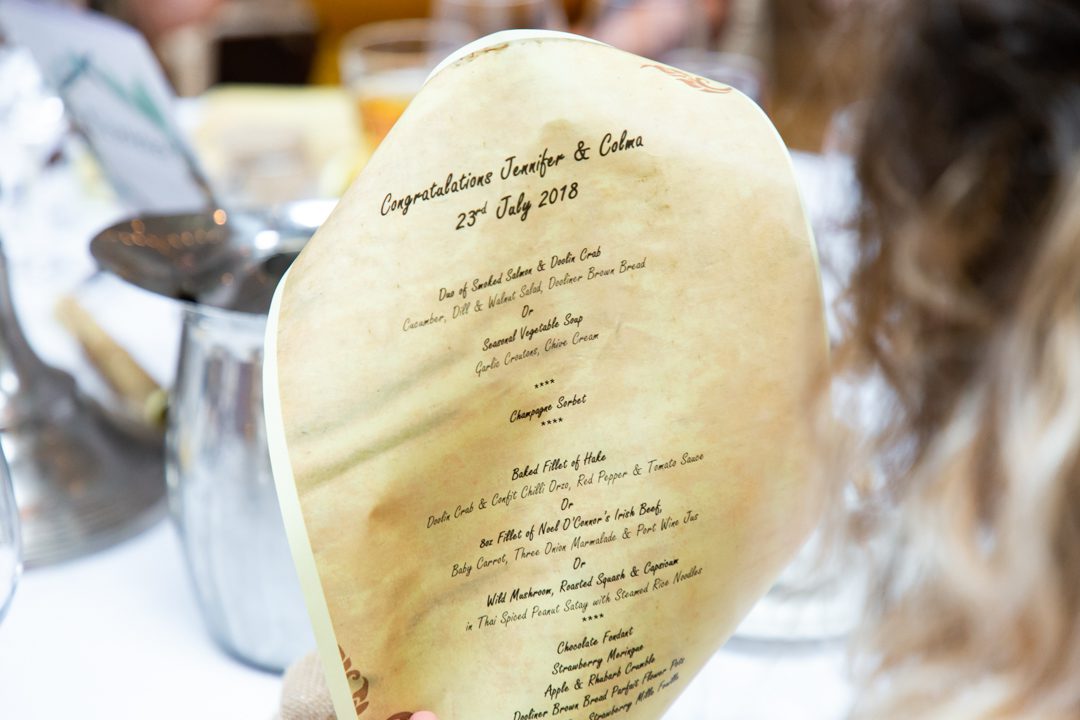 Congratulations Jennifer & Colma
23rd July 2018
Duo of Smoked Salmon & Doolin Crab
Cucumber, Dill & Walnut Salad, Dooliner Brown Bread
Or
Seasonal Vegetable Soup
Garlic Croutons, Chive Cream
****
Champagne Sorbet
****
Baked Fillet of Hake
Doolin Crab & Confit Chilli Orzo, Red Pepper & Tomato Sauce
Or
8oz Fillet of Noel O'Connor's Irish Beef,
Baby Carrot, Three Onion Marmalade & Port Wine Jus
Or
Wild Mushroom, Roasted Squash & Capsicum
in Thai Spiced Peanut Satay with Steamed Rice Noodles
****
Chocolate Fondant
Strawberry Meringue
Apple & Rhubarb Crumble
Dooliner Brown Bread Parfait Flower Pots
Strawberry Mille Feuille